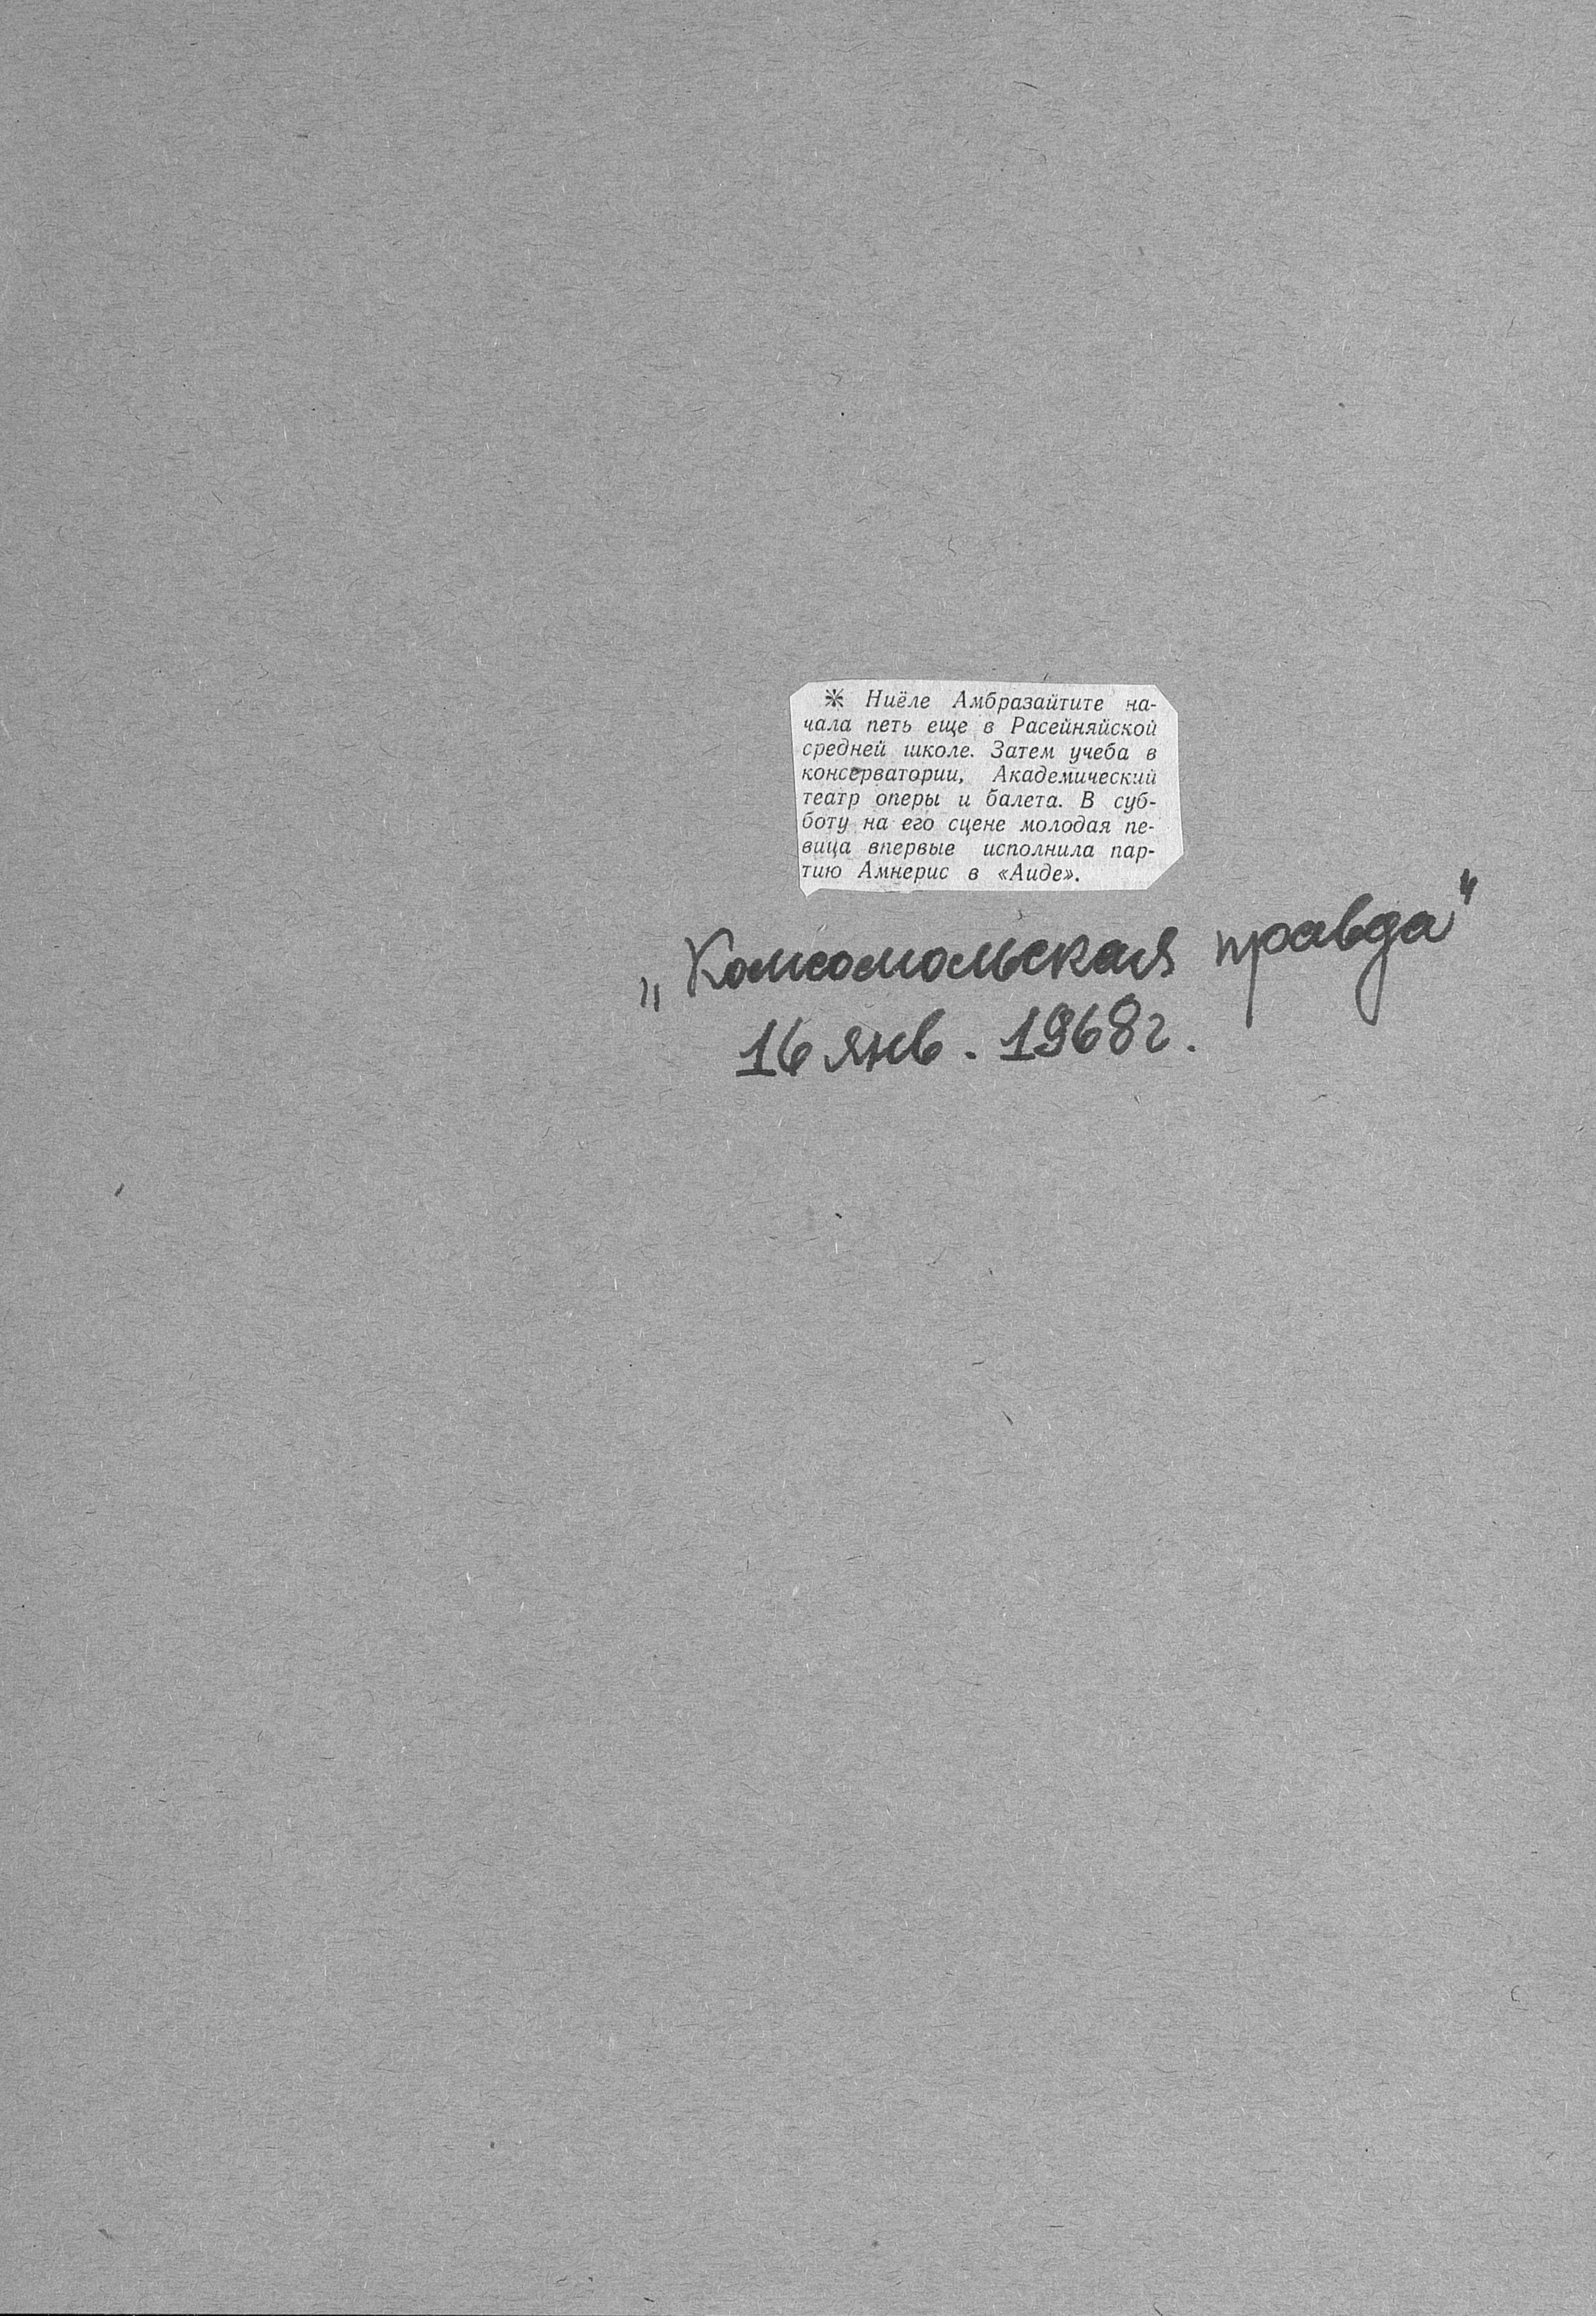 ✻ Ниёле Амбразайтите на-
чала петь еще в Расейняйской
средней школе. Затем учеба в
консерватории, Академический
театр оперы и балета. В суб-
боту на его сцене молодая пе-
вица впервые исполнила пар-
тию Амнерис в «Аиде».
„Комсомольская правда"
16 янв. 1968г.